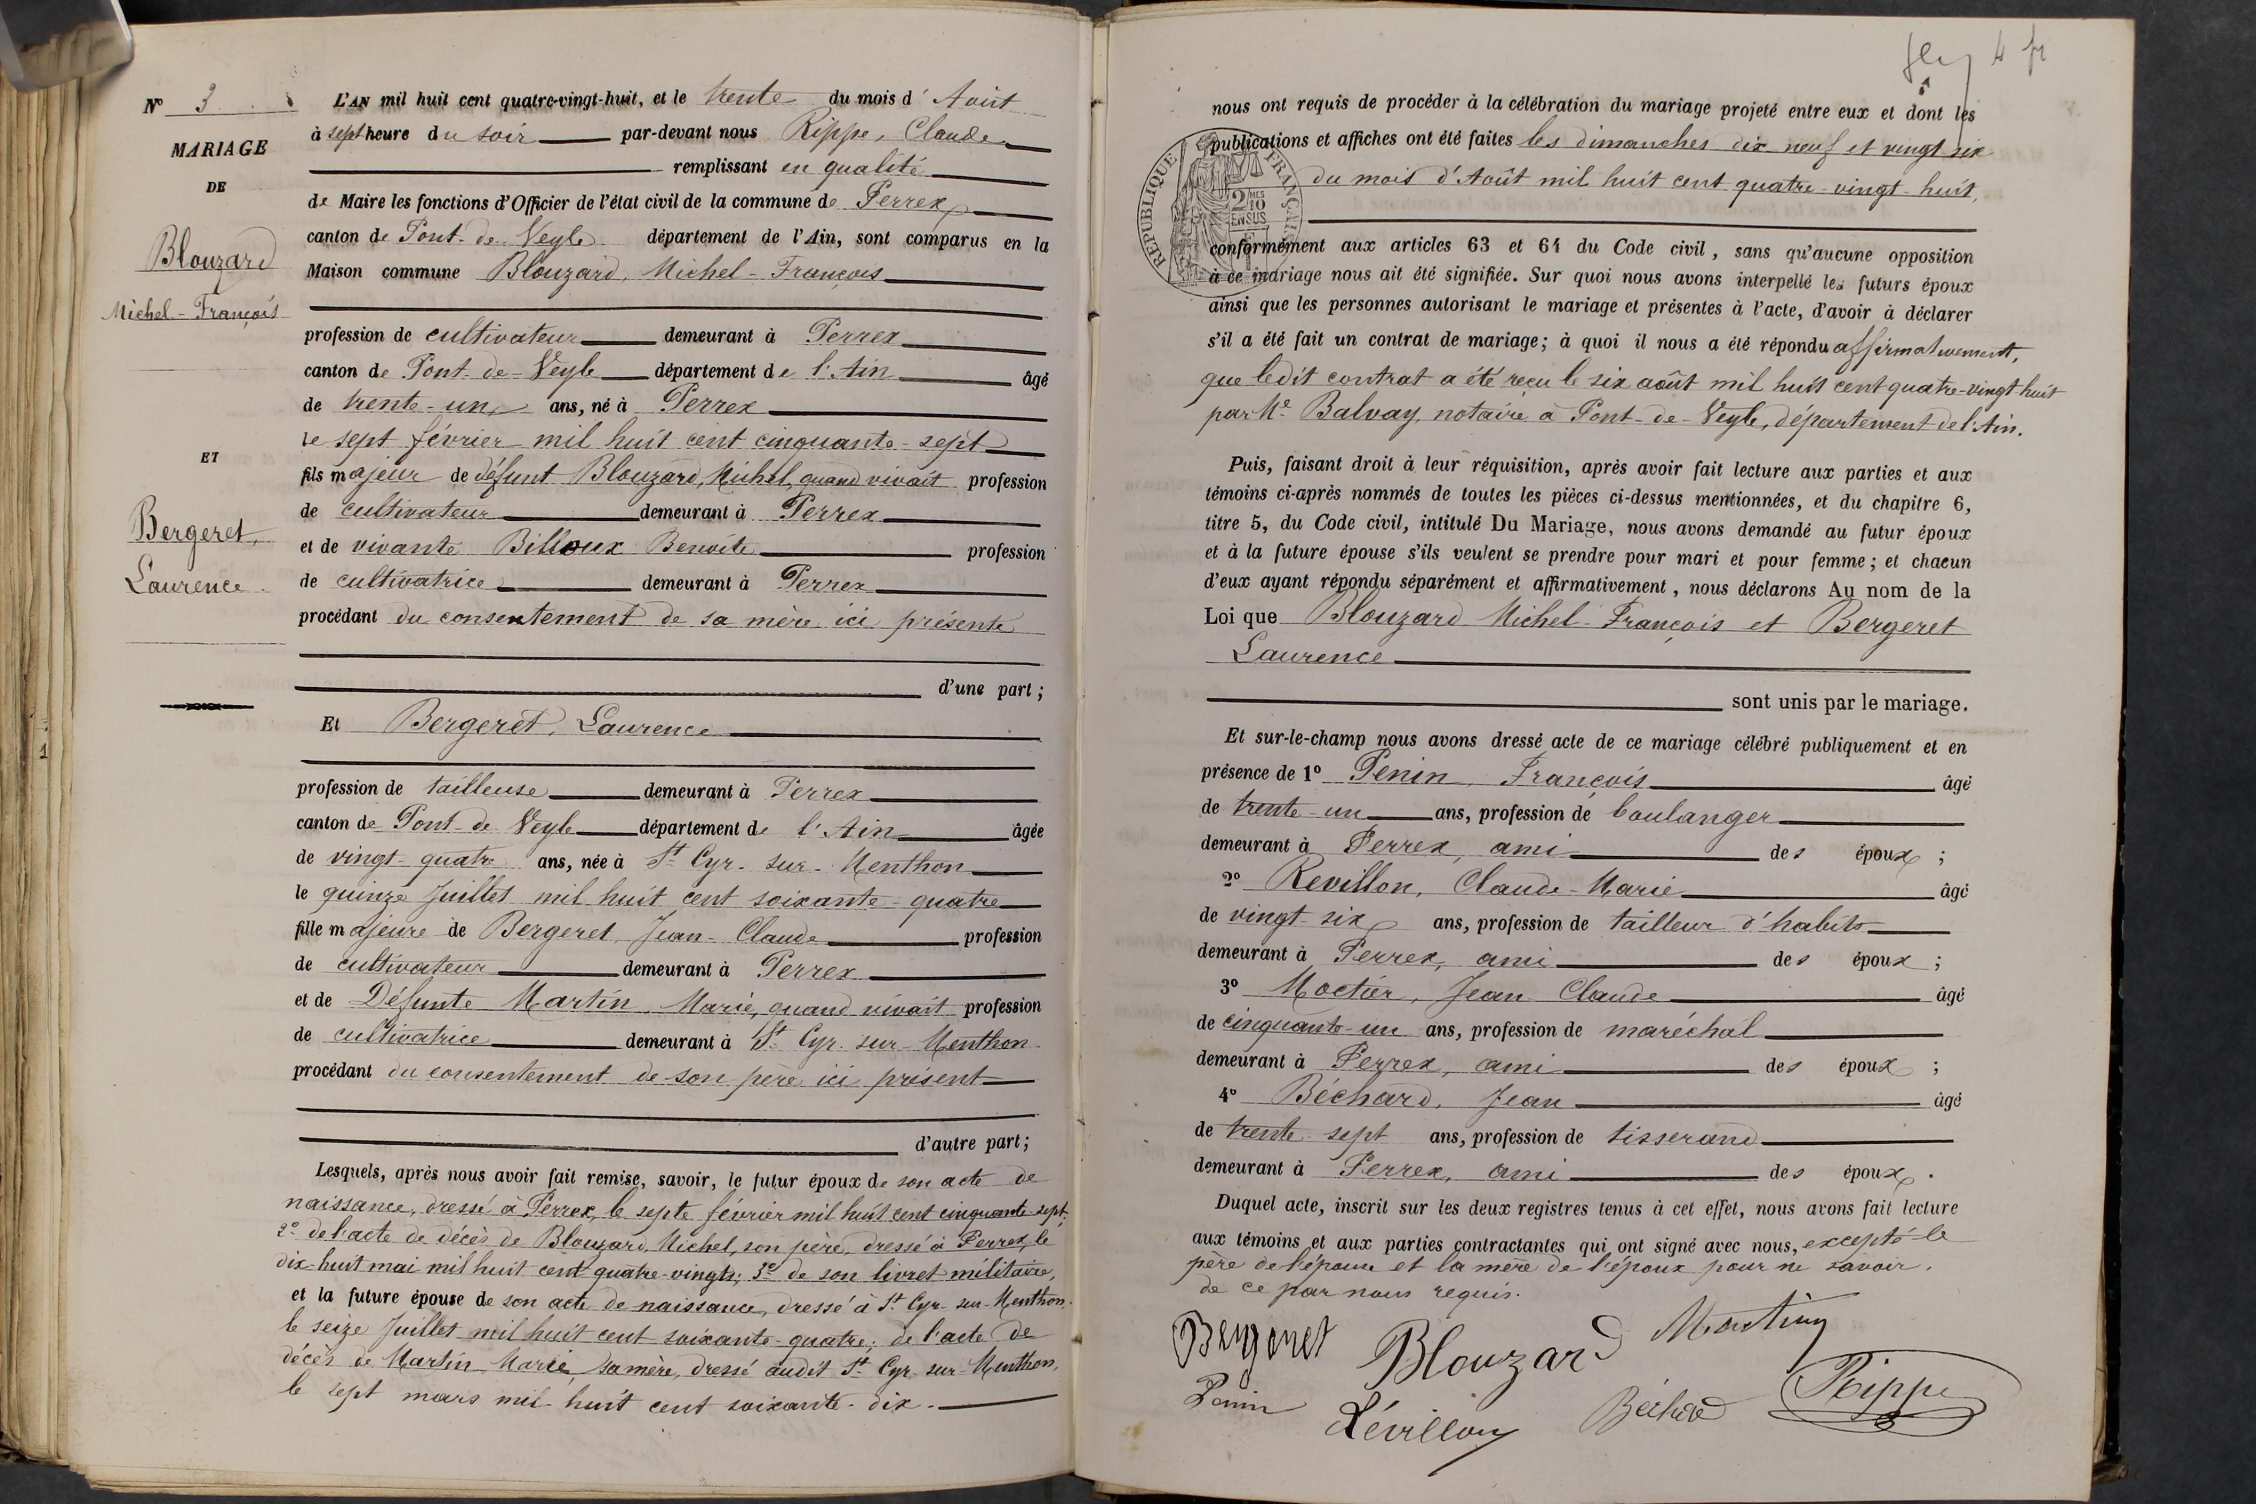 N° 3
MARIAGE
DE
Blouzard
Michel-François
ET
Bergeret,
Laurence
L'AN mil huit cent quatre-vingt-huit, et le trente du mois d'Août
à sept heure du soir par-devant nous Rippe, Claude
remplissant en qualité
de Maire les fonctions d'Officier de l'état civil de la commune de Perrex
canton de Pont-de-Veyle département de l'Ain, sont comparus en la
Maison commune Blouzard, Michel-François
profession de cultivateur demeurant à Perrex
canton de Pont-de-Veyle département de l'Ain âgé
de trente-un ans, né à Perrex
le sept février mil huit cent cinquante-sept
fils majeur de défunt Blouzard, Michel, quand vivait profession
de cultivateur demeurant à Perrex
et de vivante Billoux Benoîte profession
de cultivatrice demeurant à Perrex
procédant du consentement de sa mère ici présente
d'une part ;
Et Bergeret, Laurence
profession de tailleuse demeurant à Perrex
canton de Pont-de-Veyle département de l'Ain âgée
de vingt-quatre ans, née à St Cyr-sur-Menthon
le quinze Juillet mil huit cent soixante-quatre
fille majeure de Bergeret Jean-Claude profession
de cultivateur demeurant à Perrex
et de Défunte Martin Marie, quand vivait profession
de cultivatrice demeurant à St Cyr-sur-Menthon
procédant du consentement de son père ici présent
d'autre part ;
Lesquels, après nous avoir fait remise, savoir, le futur époux de son acte de
naissance, dressé à Perrex, le septe février mil huit cent cinquante-sept;
2° de l'acte de décès de Blouzard, Michel, son père, dressé à Perrex, le
dix-huit mai mil huit cent quatre-vingts; 3° de son livret militaire,
et la future épouse de son acte de naissance, dressé à St Cyr-sur-Menthon
le seize Juillet mil huit cent soixante-quatre; de l'acte de
décès de Martin Marie, sa mère, dressé audit St Cyr-sur-Menthon,
le sept mars mil huit cent soixante-dix.
4 fr
nous ont requis de procéder à la célébration du mariage projeté entre eux et dont les
publications et affiches ont été faites les dimanches dix-neuf et vingt-six
du mois d'Août mil huit cent quatre-vingt-huit,
RÉPUBLIQUE FRANÇAISE
2 MES 2/10 EN SUS
conformément aux articles 63 et 64 du Code civil, sans qu'aucune opposition
à ce mariage nous ait été signifiée. Sur quoi nous avons interpellé les futurs époux
ainsi que les personnes autorisant le mariage et présentes à l'acte, d'avoir à déclarer
s'il a été fait un contrat de mariage; à quoi il nous a été répondu affirmativement,
que ledit contrat a été reçu le six août mil huit cent quatre-vingt-huit
par Me Balvay, notaire à Pont-de-Veyle, département de l'Ain.
Puis, faisant droit à leur réquisition, après avoir fait lecture aux parties et aux
témoins ci-après nommés de toutes les pièces ci-dessus mentionnées, et du chapitre 6,
titre 5, du Code civil, intitulé Du Mariage, nous avons demandé au futur époux
et à la future épouse s'ils veulent se prendre pour mari et pour femme ; et chacun
d'eux ayant répondu séparément et affirmativement, nous déclarons Au nom de la
Loi que Blouzard Michel-François et Bergeret
Laurence
sont unis par le mariage.
Et sur-le-champ nous avons dressé acte de ce mariage célébré publiquement et en
présence de 1° Penin, François âgé
de trente-un ans, profession de boulanger
demeurant à Perrex, ami des époux ;
2° Revillon, Claude-Marie âgé
de vingt-six ans, profession de tailleur d'habits
demeurant à Perrex, ami des époux ;
3° Moctier, Jean Claude âgé
de cinquante-un ans, profession de maréchal
demeurant à Perrex, ami des époux ;
4° Béchard, Jean âgé
de trente-sept ans, profession de tisserand
demeurant à Perrex, ami des époux.
Duquel acte, inscrit sur les deux registres tenus à cet effet, nous avons fait lecture
aux témoins et aux parties contractantes qui ont signé avec nous, excepté le
père de l'épouse et la mère de l'époux pour ne savoir,
de ce par nous requis.
Bergeret Blouzard
Penin Révillon Béchard Rippe